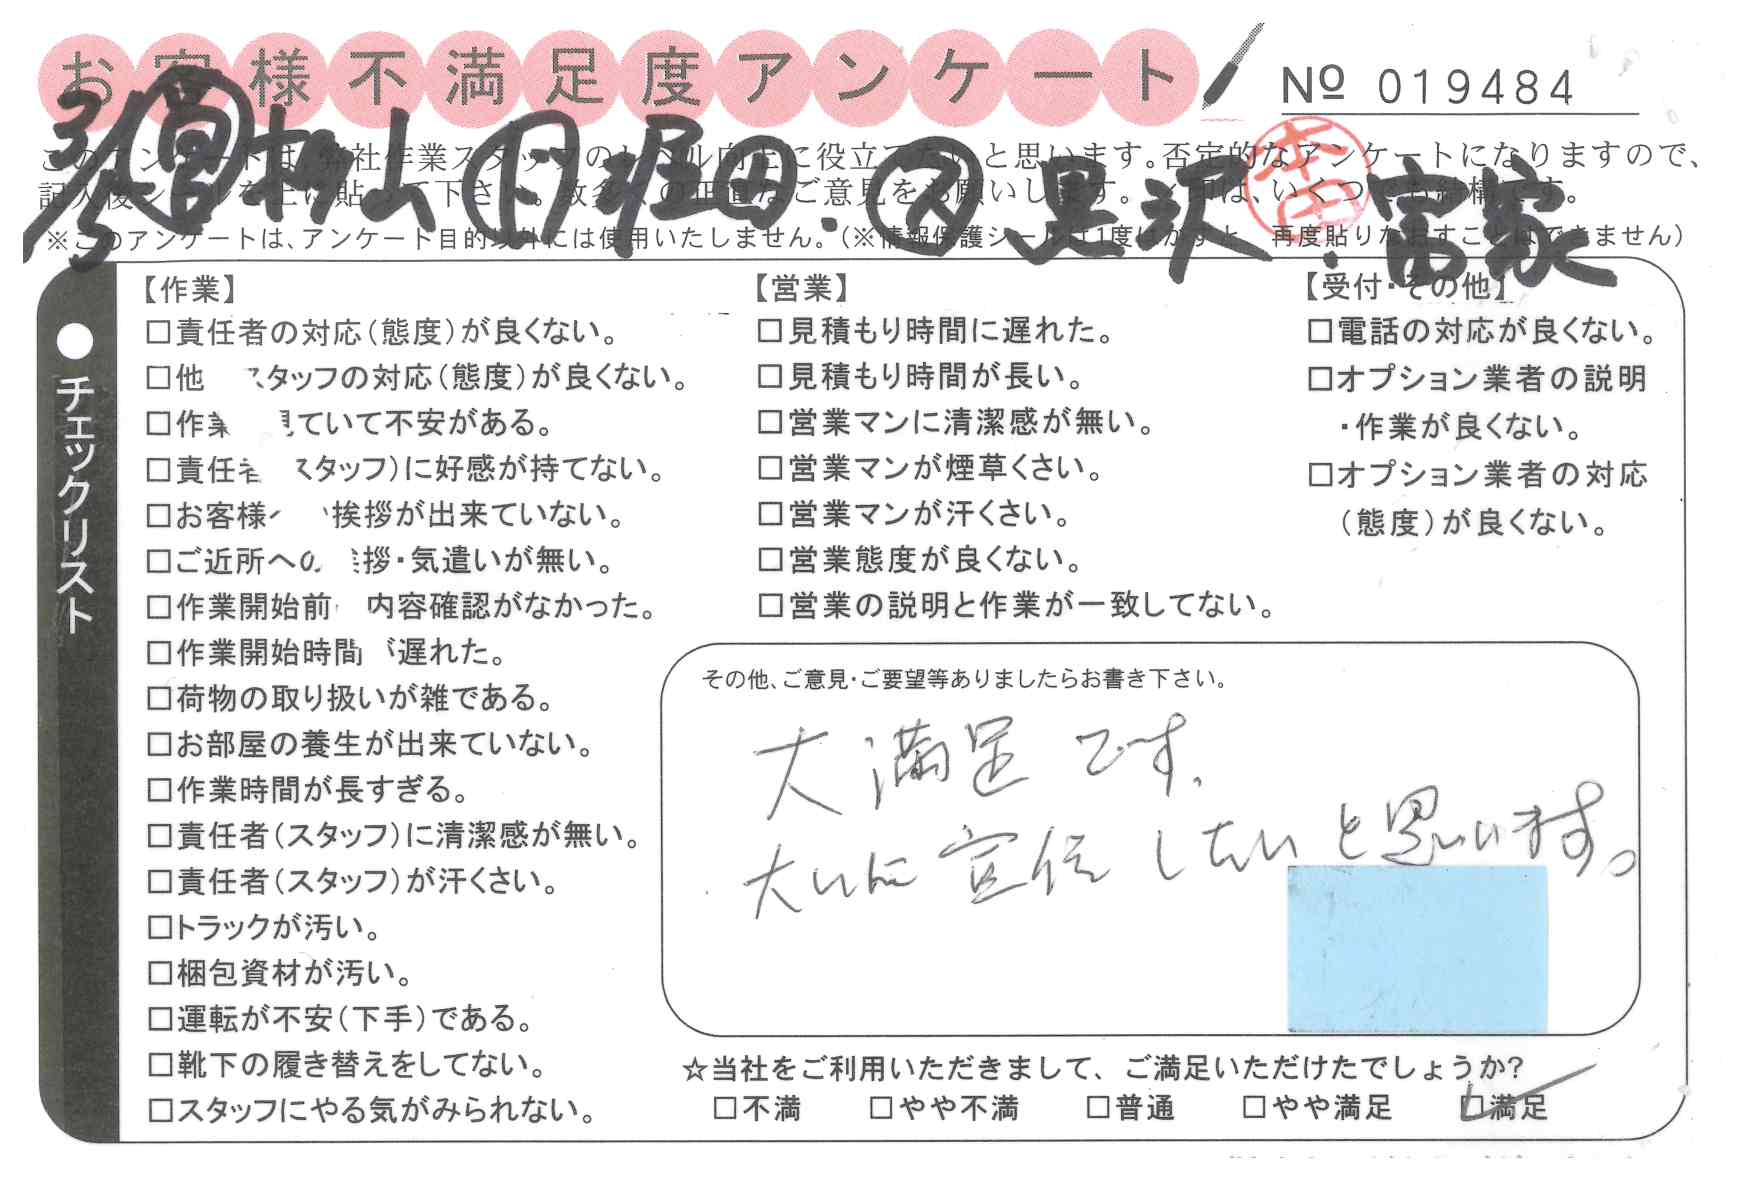 お客様不満足度アンケート
№ 019484
3/5 営 杉山 月 堀田・ス 黒沢・富家
本田
このアンケートは、弊社作業スタッフのレベル向上に役立てたいと思います。否定的なアンケートになりますので、
記入後シールを上に貼って下さい。数多くの正直なご意見をお願いします。レ印は、いくつでも結構です。
※このアンケートは、アンケート目的以外には使用いたしません。(※情報保護シールは1度はがすと、再度貼りなおすことはできません)
●チェックリスト
【作業】
□責任者の対応(態度)が良くない。
□他 スタッフの対応(態度)が良くない。
□作業 見ていて不安がある。
□責任者 スタッフ)に好感が持てない。
□お客様へ い挨拶が出来ていない。
□ご近所への 挨拶・気遣いが無い。
□作業開始前 内容確認がなかった。
□作業開始時間が遅れた。
□荷物の取り扱いが雑である。
□お部屋の養生が出来ていない。
□作業時間が長すぎる。
□責任者(スタッフ)に清潔感が無い。
□責任者(スタッフ)が汗くさい。
□トラックが汚い。
□梱包資材が汚い。
□運転が不安(下手)である。
□靴下の履き替えをしてない。
□スタッフにやる気がみられない。
【営業】
□見積もり時間に遅れた。
□見積もり時間が長い。
□営業マンに清潔感が無い。
□営業マンが煙草くさい。
□営業マンが汗くさい。
□営業態度が良くない。
□営業の説明と作業が一致してない。
【受付・その他】
□電話の対応が良くない。
□オプション業者の説明
・作業が良くない。
□オプション業者の対応
(態度)が良くない。
その他、ご意見・ご要望等ありましたらお書き下さい。
大満足です。
大いに宣伝したいと思います。
☆当社をご利用いただきまして、ご満足いただけたでしょうか?
□不満 □やや不満 □普通 □やや満足 ☑満足